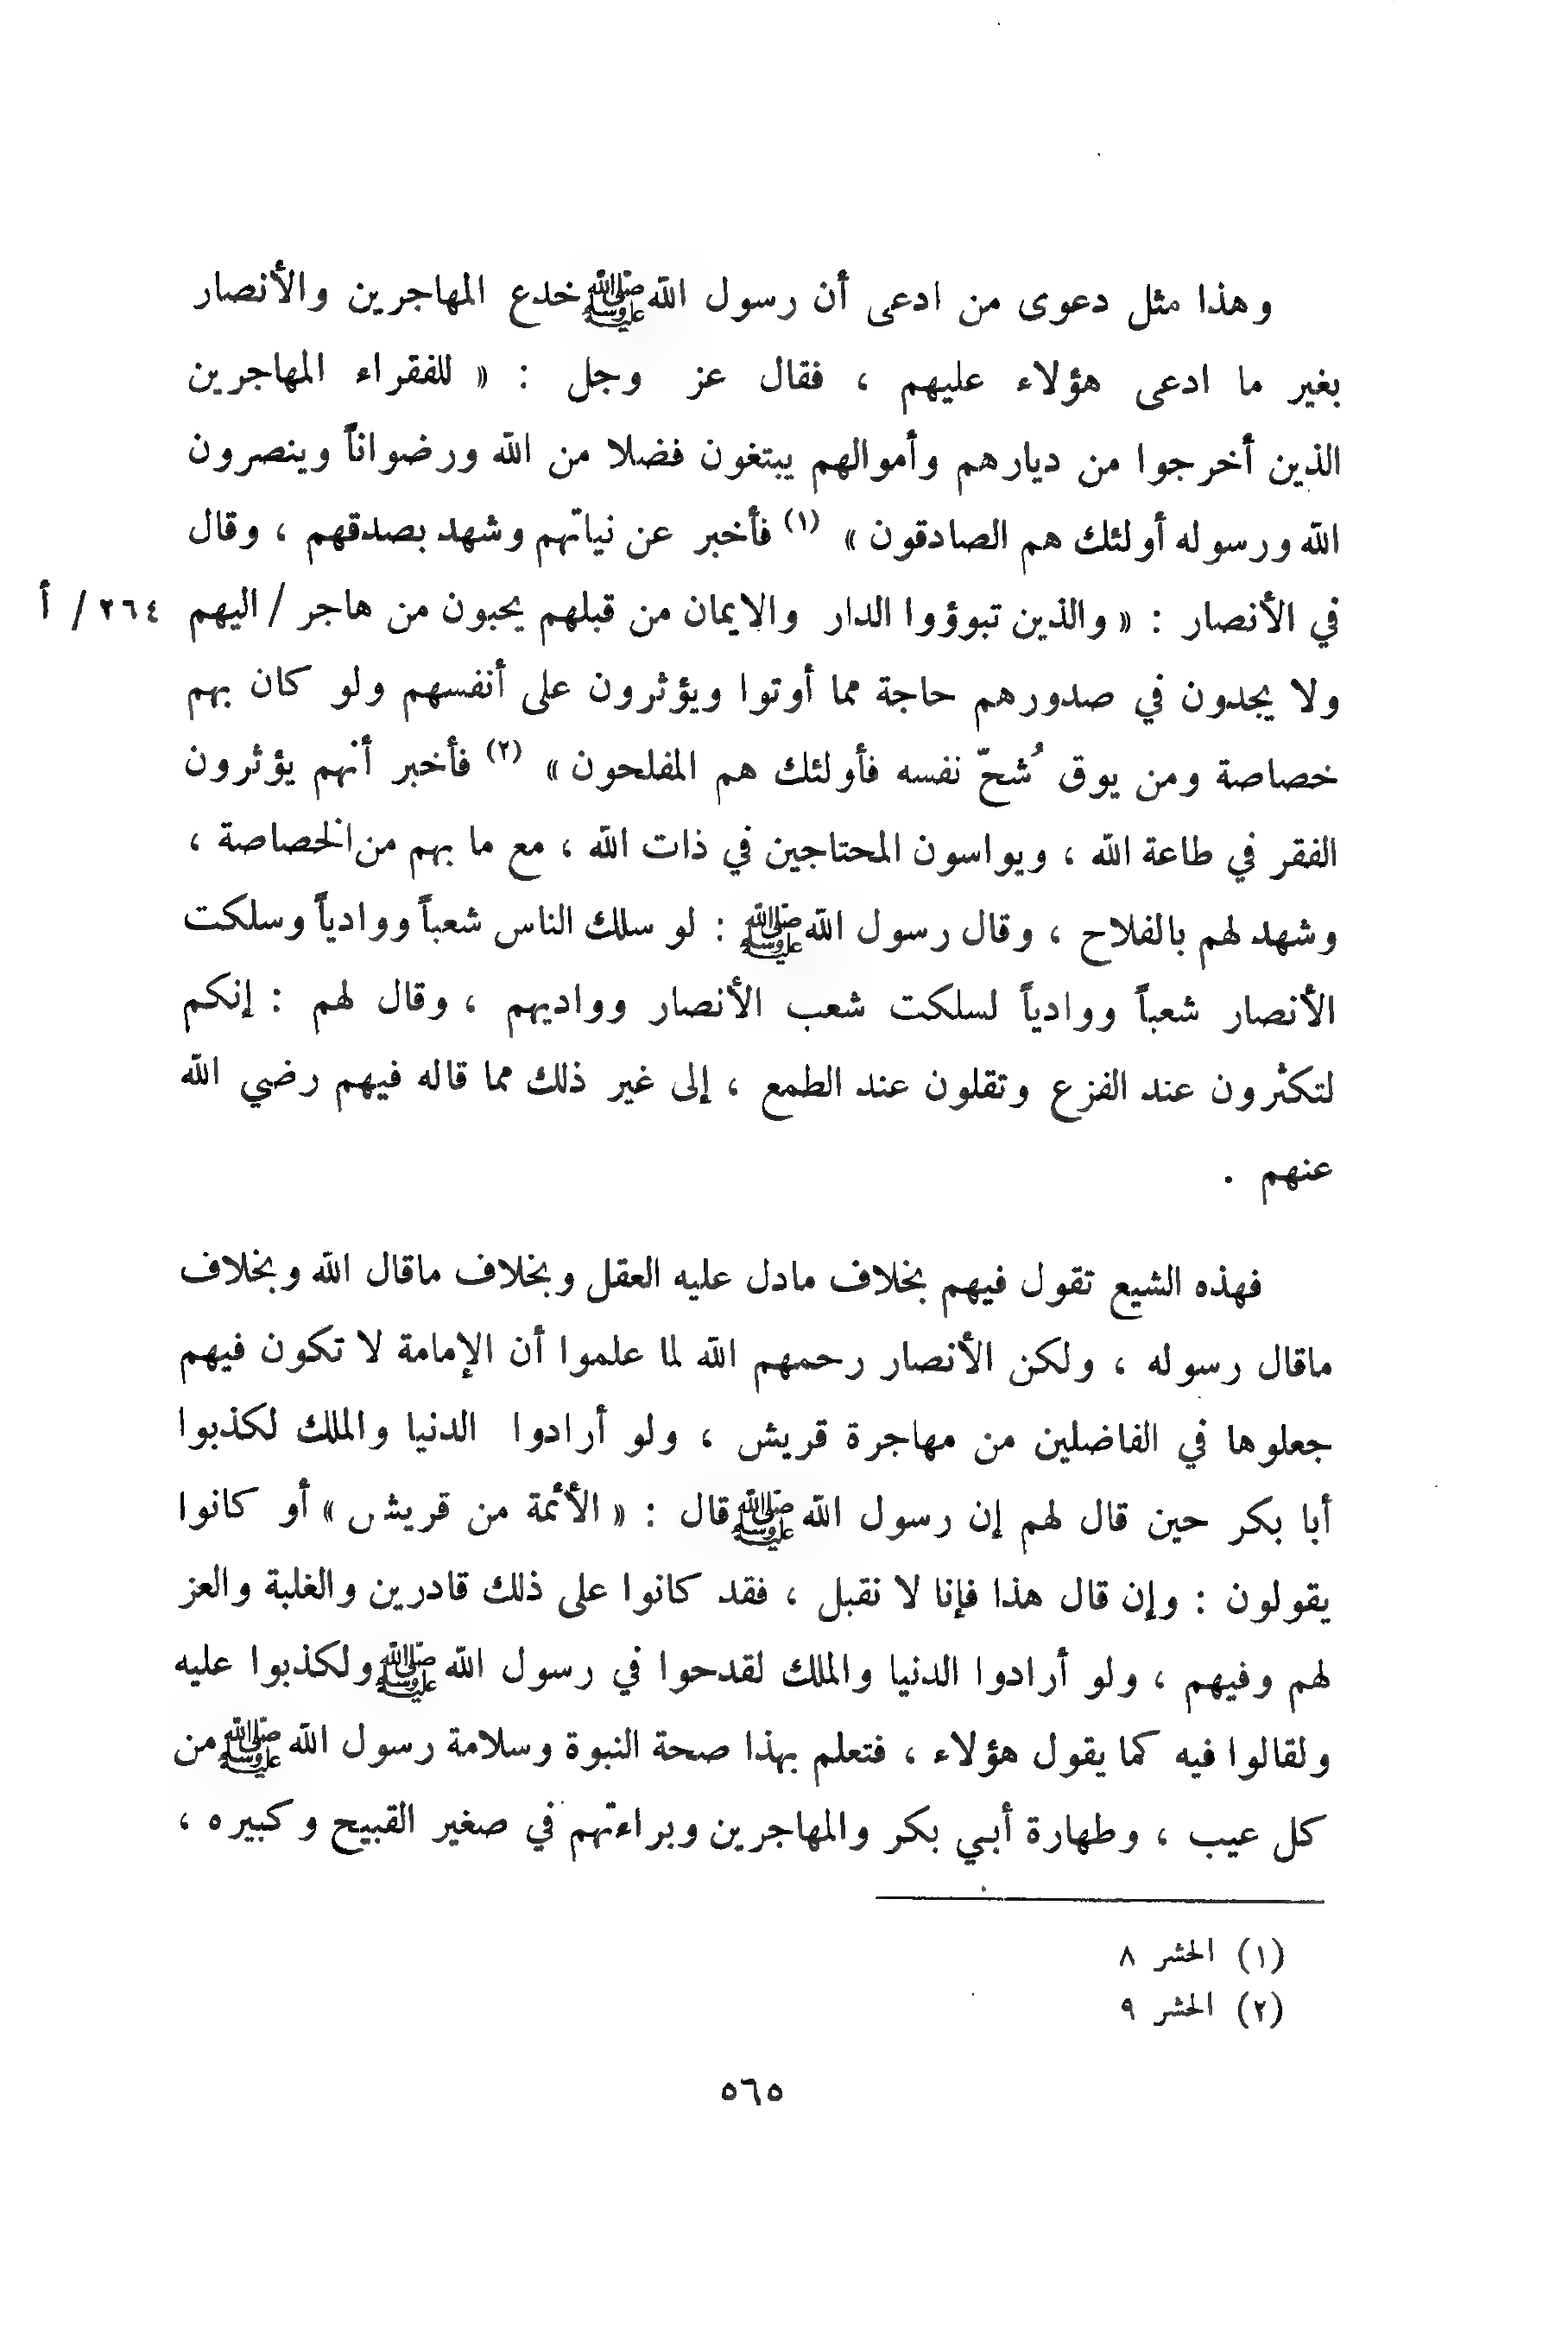 وهذا مثل دعوى من ادعى أن رسول الله ﷺ خدع المهاجرين والأنصار
بغير ما ادعى هؤلاء عليهم ، فقال عز وجل : « للفقراء المهاجرين
الذين أخرجوا من ديارهم وأموالهم يبتغون فضلا من الله ورضواناً وينصرون
الله ورسوله أولئك هم الصادقون » (١) فأخبر عن نياتهم وشهد بصدقهم ، وقال
في الأنصار : « والذين تبوؤوا الدار والايمان من قبلهم يحبون من هاجر / اليهم ٢٦٤ / أ
ولا يجدون في صدورهم حاجة مما أوتوا ويؤثرون على أنفسهم ولو كان بهم
خصاصة ومن يوق شُحّ نفسه فأولئك هم المفلحون » (٢) فأخبر أنهم يؤثرون
الفقر في طاعة الله ، ويواسون المحتاجين في ذات الله ، مع ما بهم من الخصاصة ،
وشهد لهم بالفلاح ، وقال رسول الله ﷺ : لو سلك الناس شعباً ووادياً وسلكت
الأنصار شعباً ووادياً لسلكت شعب الأنصار وواديهم ، وقال لهم : إنكم
لتكثرون عند الفزع وتقلون عند الطمع ، إلى غير ذلك مما قاله فيهم رضي الله
عنهم .
فهذه الشيع تقول فيهم بخلاف مادل عليه العقل وبخلاف ماقال الله وبخلاف
ماقال رسوله ، ولكن الأنصار رحمهم الله لما علموا أن الإمامة لا تكون فيهم
جعلوها في الفاضلين من مهاجرة قريش ، ولو أرادوا الدنيا والملك لكذبوا
أبا بكر حين قال لهم إن رسول الله ﷺ قال : « الأئمة من قريش » أو كانوا
يقولون : وإن قال هذا فإنا لا نقبل ، فقد كانوا على ذلك قادرين والغلبة والعز
لهم وفيهم ، ولو أرادوا الدنيا والملك لقدحوا في رسول الله ﷺ ولكذبوا عليه
ولقالوا فيه كما يقول هؤلاء ، فتعلم بهذا صحة النبوة وسلامة رسول الله ﷺ من
كل عيب ، وطهارة أبي بكر والمهاجرين وبراءتهم في صغير القبيح وكبيره ،
(١) الحشر ٨
(٢) الحشر ٩
٥٦٥